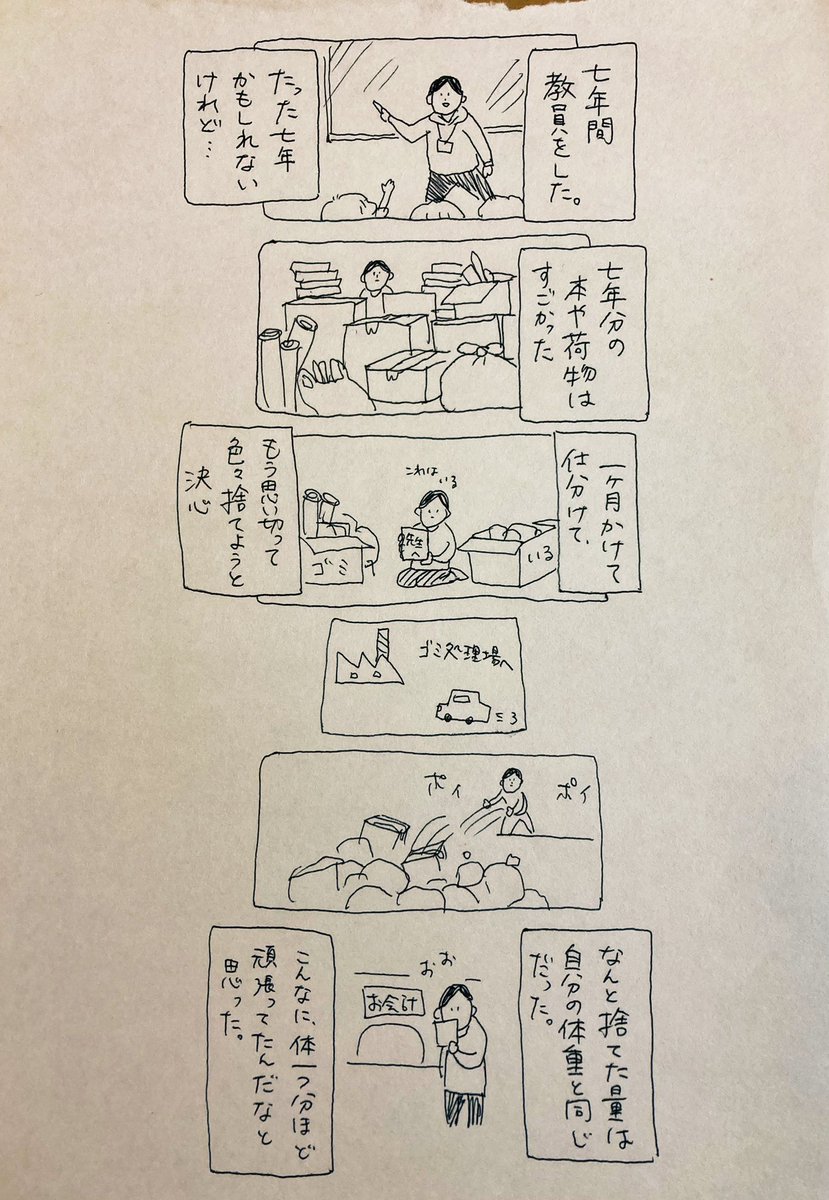 七年間
教員をした。
たった七年
かもしれない
けれど…
七年分の
本や荷物は
すごかった
一ヶ月かけて
仕分けて、
これは
いる
先生
へ
いる
ゴミ
もう思い切って
色々捨てようと
決心
ゴミ処理場へ
ポイ
ポイ
なんと捨てた量は
自分の体重と同じ
だった。
おお
お会計
こんなに、体一つ分ほど
頑張ってたんだなと
思った。